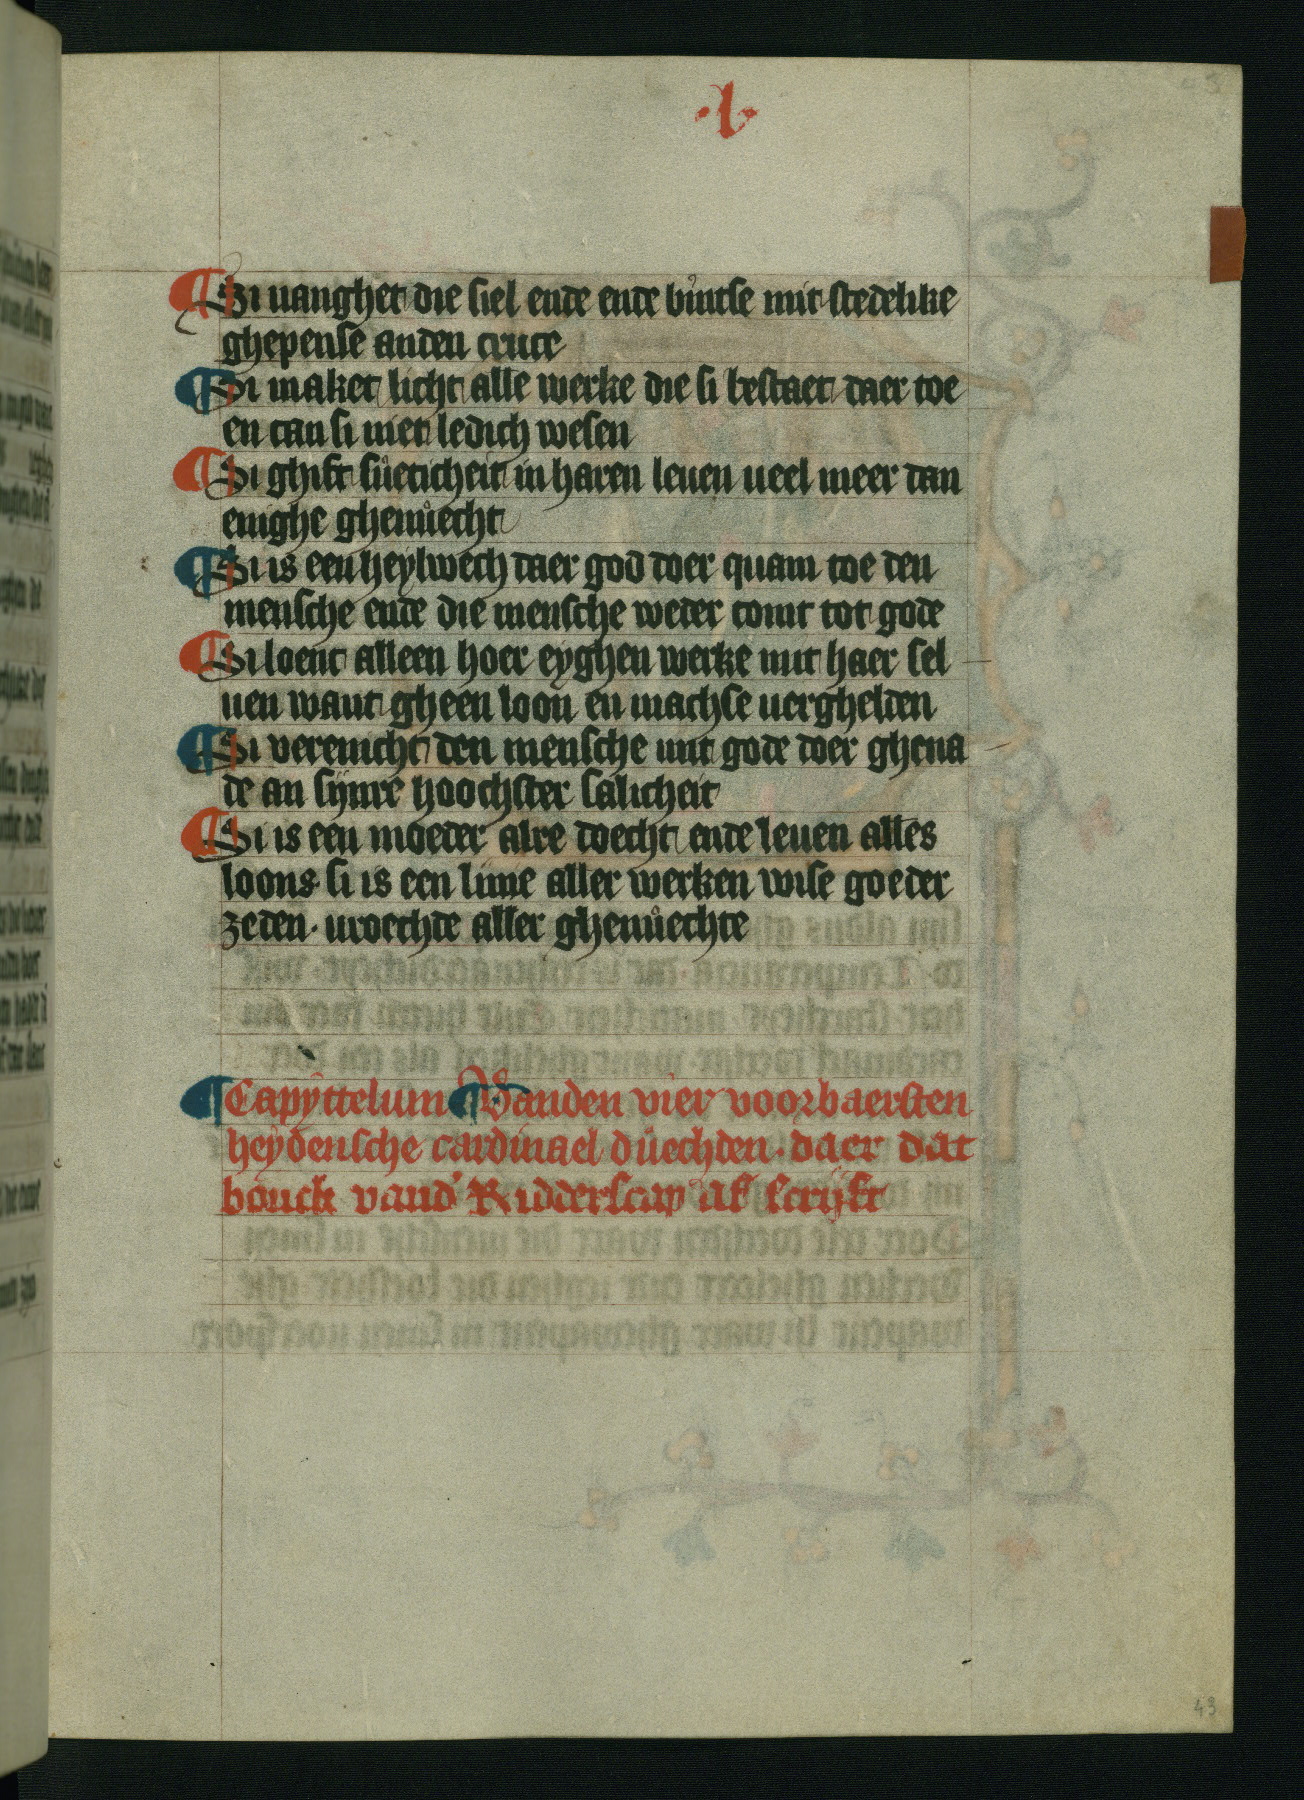 ·l·
¶ Si uanghet die siel ende ende bintse mit stedelike
ghepense anden cruce
¶ Si maket licht alle werke die si bestaet daer toe
en can si niet ledich wesen
¶ Si ghift sůeticheit in haren leuen ueel meer dan
enighe ghenůecht
¶ Si is een heylwech daer god doer quam toe den
mensche ende die mensche weder comt tot gode
¶ Si loent alleen hoer eyghen werke mit haer sel
uen want gheen loon en machse uerghelden
¶ Si verenicht den mensche mit gode doer ghena
de an sijnre hoochster salicheit
¶ Si is een moeder alre doecht ende leuen alles
loons· si is een lijme aller werken wise goeder
zeden· uroechde aller ghenůechte
¶ Capÿttelum ¶ Vanden vier voorbaersten
heydensche cardinael důechden· daer dat
bouck vand' Ridderscap af scrijft
43